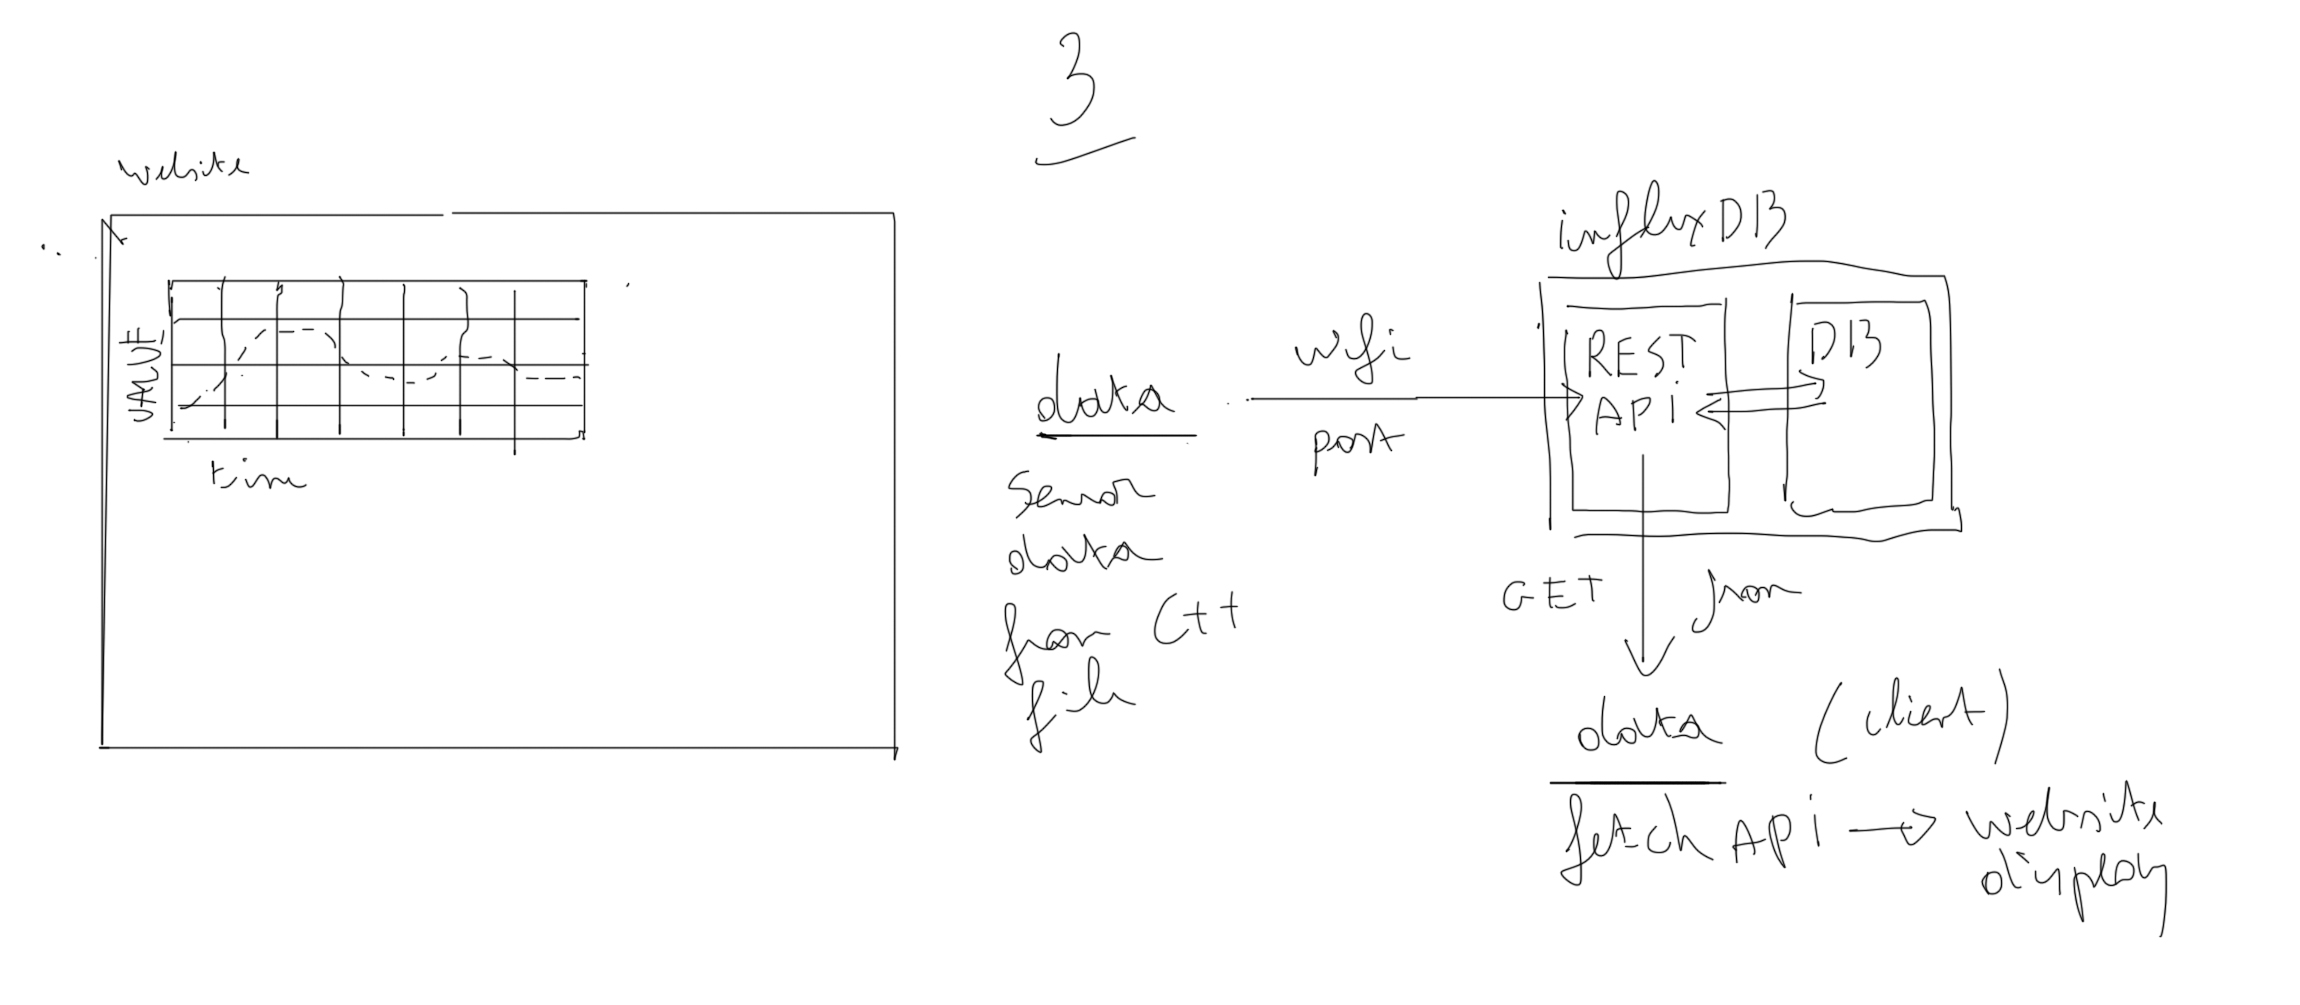 3
website
VALUE
time
data
sensor
data
from C++
file
wifi
post
influxDB
REST
API
DB
GET
json
data (client)
fetch API → website
display